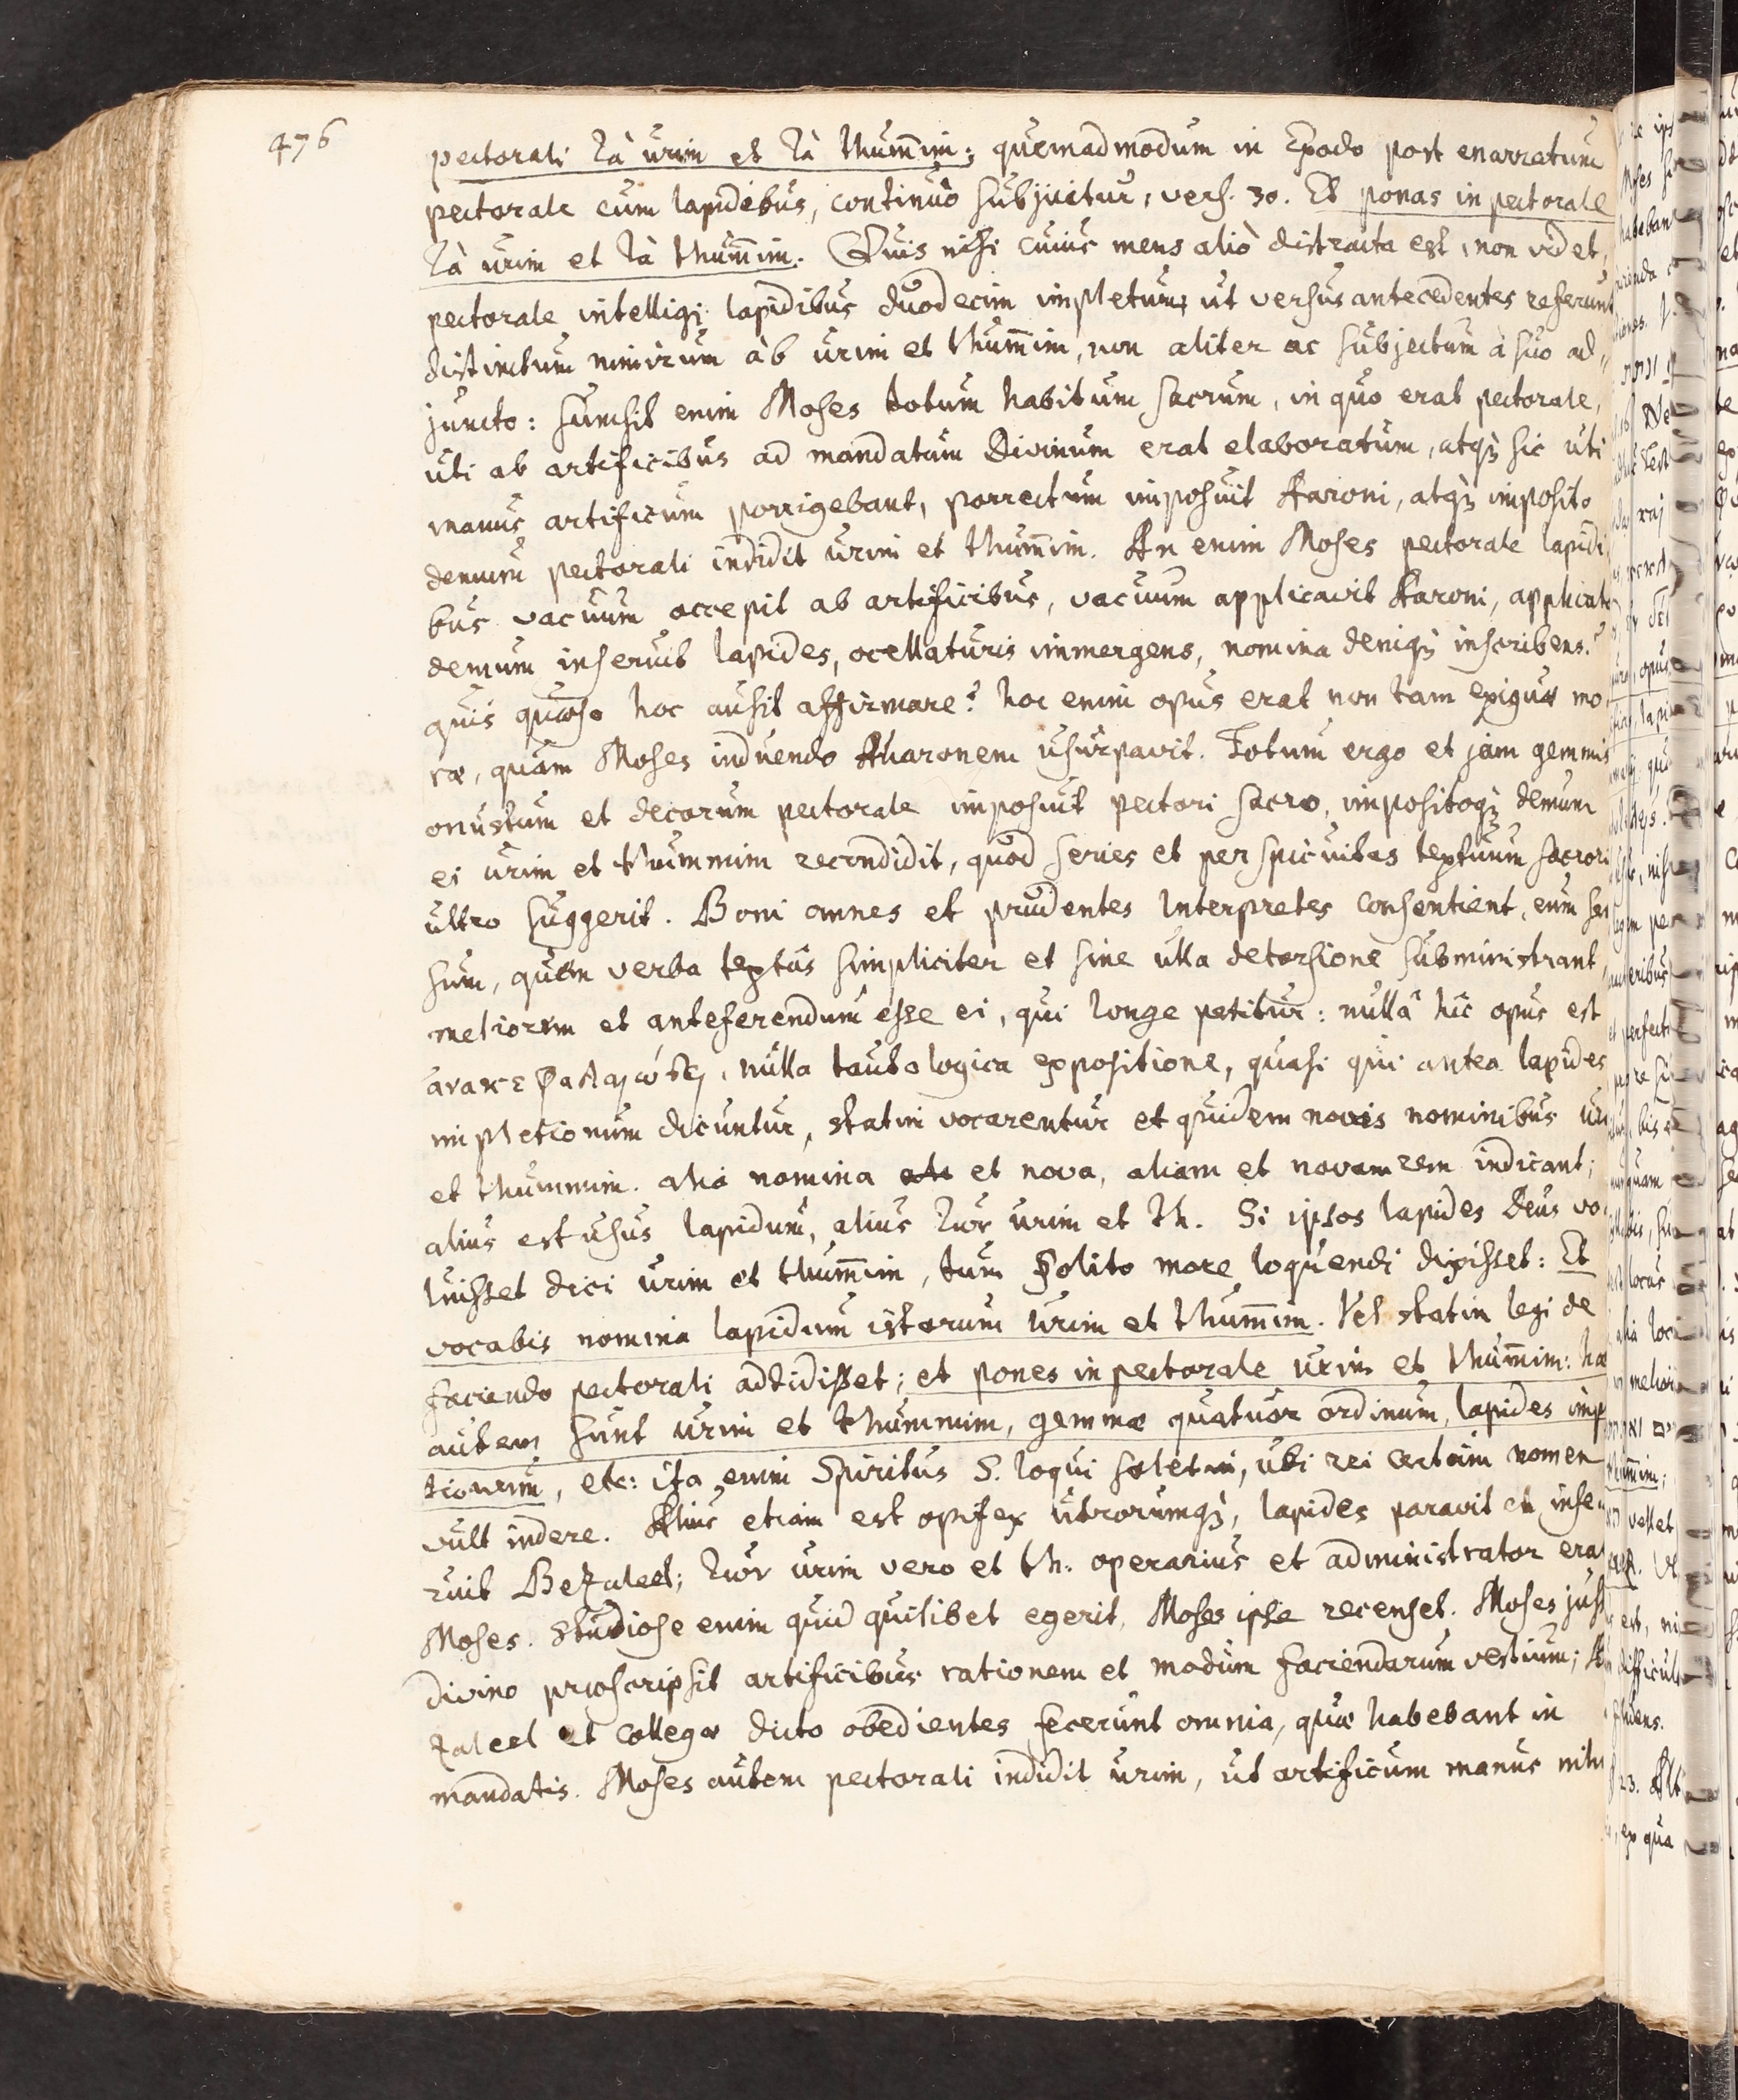 476
pectorali τὰ urim et τὰ thum̄im; quemadmodum in Exodo post enarratum
pectorale cum lapidibus, continuò subjicitur, vers. 30. Et ponas in pectorale
τὰ urim et τὰ thum̄im. Quis nisi cuius mens aliò distracta est, non videt,
pectorale intelligi lapidibus duodecim impletum, ut versus antecedentes referunt
distinctum nimirum ab urim et thum̄im, non aliter ac subjectum à suo ad,,
juncto: sumsit enim Moses totum habitum sacrum, in quo erat pectorale,
uti ab artificibus ad mandatum Divinum erat elaboratum, atqꝫ sic uti
manus artificum porrigebant, porrectum imposuit Aaroni, atqꝫ imposito
demum pectorali indidit urim et thum̄im. An enim Moses pectorale lapidi
bus vacuum accepit ab artificibus, vacuum applicavit Aaroni, applicato
demum inseruit lapides, ocellaturis immergens, nomina deniqꝫ inscribens?
quis quæso hoc ausit affirmare? hoc enim opus erat non tam exiguæ mo
ræ, quam Moses induendo Aharonem usurpavit. Totum ergo et jam gemmis
onustum et decorum pectorale imposuit pectori sacro, impositoqꝫ demum
ei urim et thummim recondidit, quod series et perspicuitas textuum sacrorū
ultro suggerit. Boni omnes et prudentes Interpretes consentient, eum sen
sum, quem verba textus simpliciter et sine ulla detorsione subministrant,
meliorem et anteferendum esse ei, qui longe petitur: nullâ hîc opus est
nulla tautologica expositione, quasi qui antea lapides
impletionum dicuntur, statim vocarentur et quidem novis nominibus
et thummim. alia nomina et nova, aliam et novam rem indicant;
alius est usus lapidum, alius τῶν urim et th. Si ipsos lapides Deus vo
luisset dici urim et thum̄im, tum solito more loquendi dixisset: Et
vocabis nomina lapidum istorum Urim et thum̄im. Vel statim legi de
faciendo pectorali addidisset; et pones in pectorale urim et thum̄im: hæ
autem sunt urim et thummim, gemmæ quatuor ordinum, lapides imp
tionum, etc: ita enim Spiritus S. loqui solet, ubi rei certum nomen
vult indere. Alius etiam est opifex utrorumqꝫ, lapides paravit et inse
ruit Bezaleel; τῶν urim vero et th. operarius et administrator erat
Moses. Studiose enim quid quilibet egerit, Moses ipse recenset. Moses juss
divino præscripsit artificibus rationem et modum faciendarum vestium;
zaleel et collegæ dicto obedientes fecerunt omnia, quæ habebant in
mandatis. Moses autem pectorali indidit urim, ut artificum manus nih